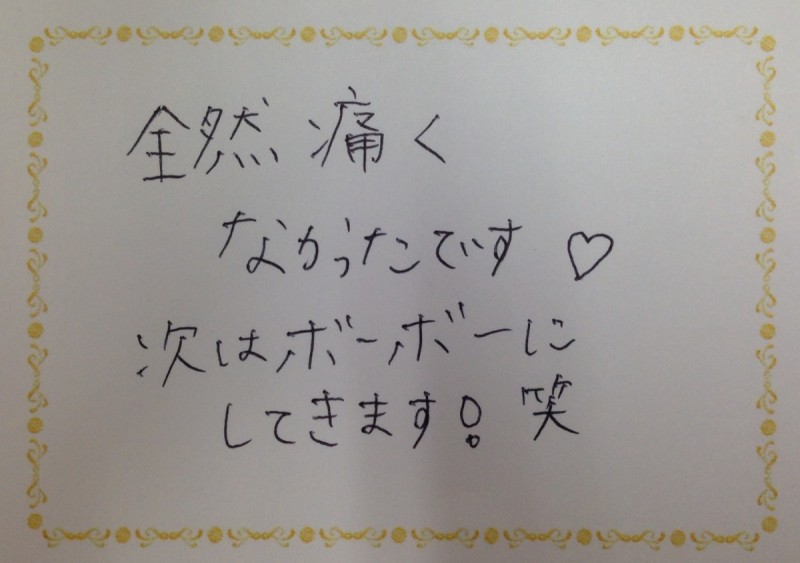 全然痛く
なかったです♡
次はボーボーに
してきます! 笑